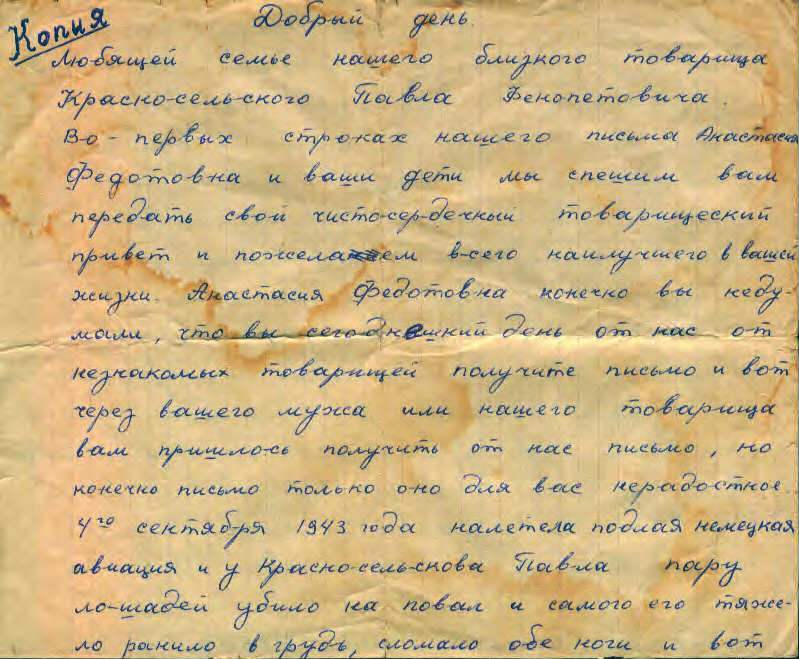 Копия
Добрый день.
Любящей семье нашего близкого товарища
Красно-сельского Павла Фенопетовича.
Во-первых строках нашего письма Анастасия
Федотовна и ваши дети мы спешим вам
передать свой чисто-сер-дечный товарищеский
привет и пожелаем в-сего наилучшего в вашей
жизни. Анастасия Федотовна конечно вы неду-
мали, что вы сегоднешний день от нас от
незнакомых товарищей получите письмо и вот
через вашего мужа или нашего товарища
вам пришло-сь получить от нас письмо, но
конечно письмо только оно для вас нерадостное.
4го сентября 1943 года налетела подлая немецкая
авиация и у Красно-сель-скова Пав-ла пару
ло-шадей убило на повал и самого его тяже-
ло ранило в грудь, сломало обе ноги и вот